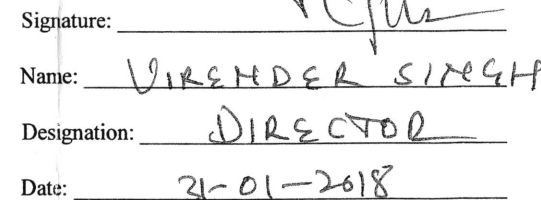 Signature:
Name: VIRENDER SINGH
Designation: DIRECTOR
Date: 31-01-2018